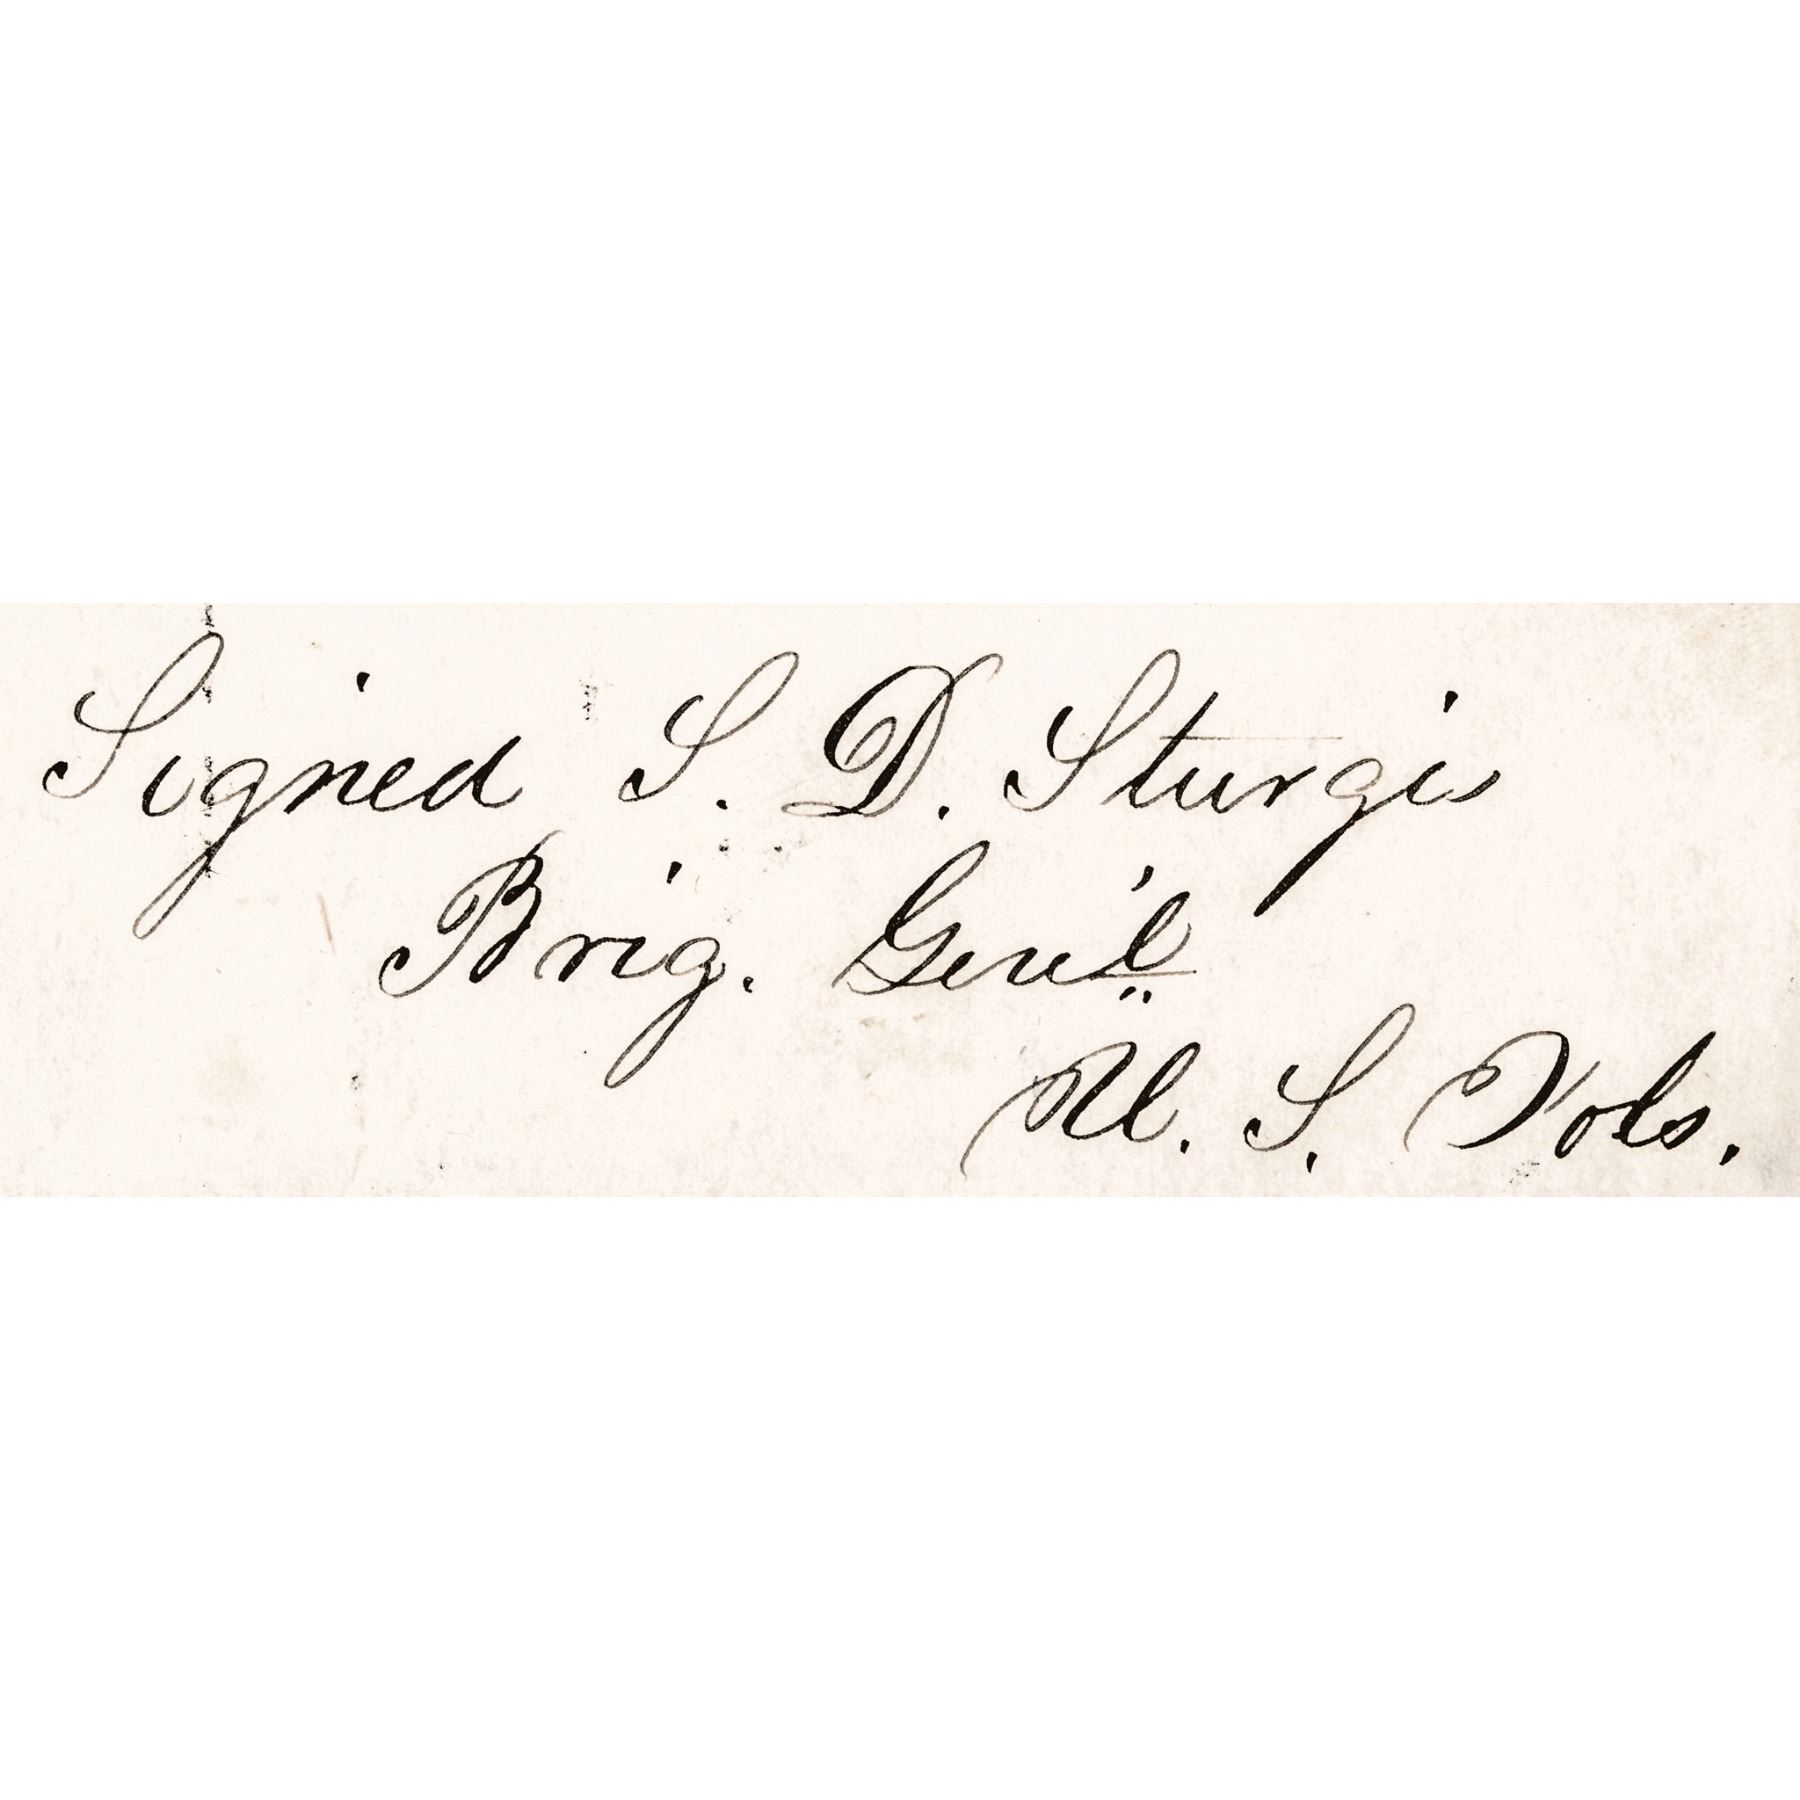 Signed S. D. Sturgis
Brig. Gen'l
U. S. Vols.